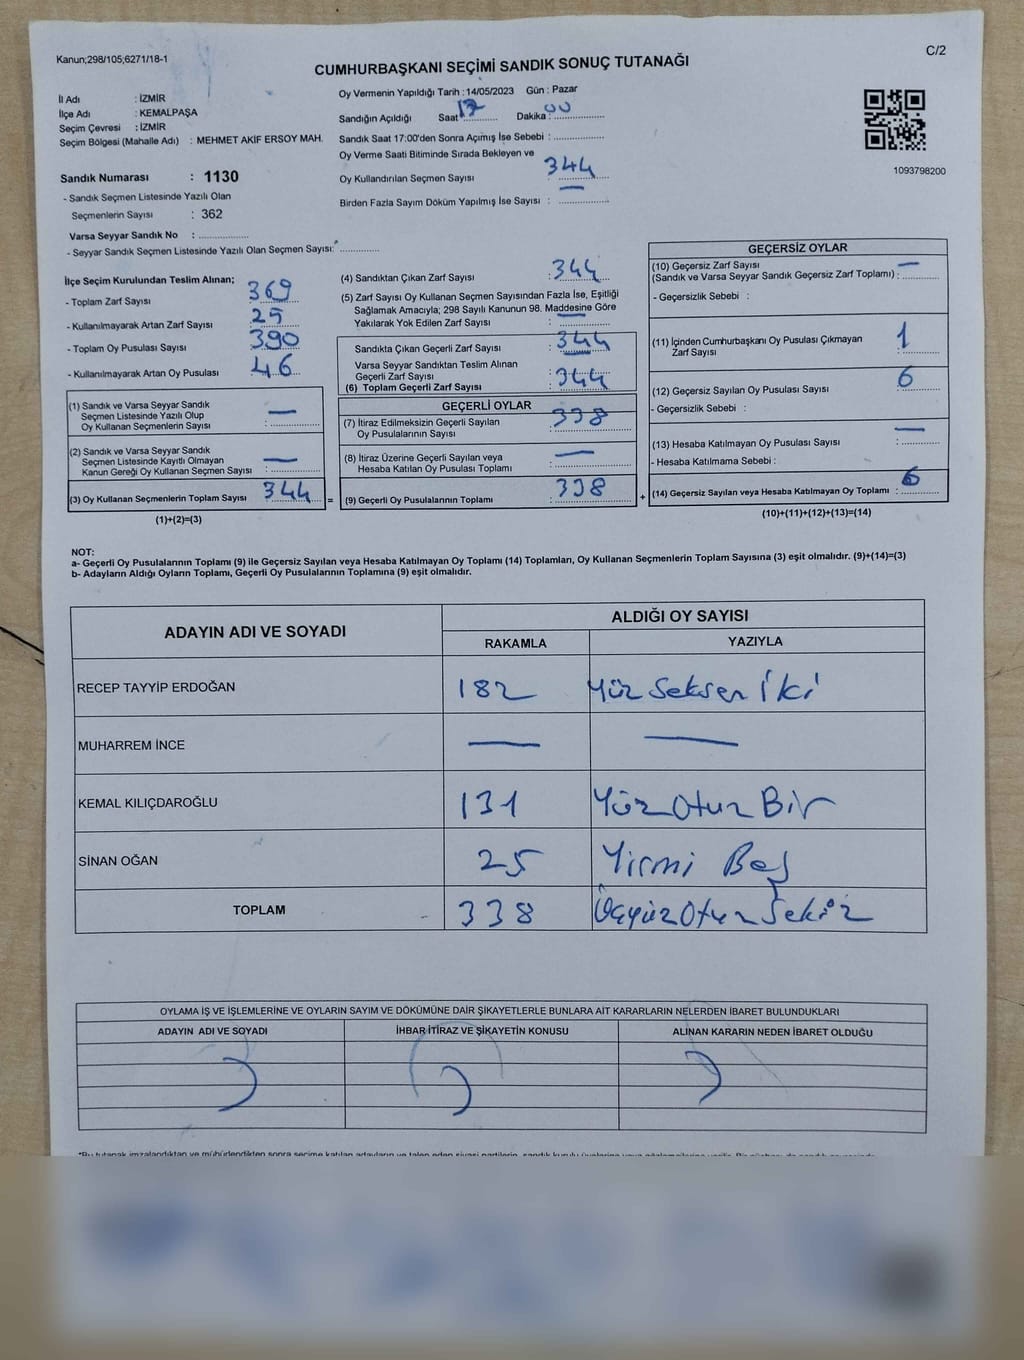 Kanun;298/105;6271/18-1
C/2
CUMHURBAŞKANI SEÇİMİ SANDIK SONUÇ TUTANAĞI
İl Adı : İZMİR
İlçe Adı : KEMALPAŞA
Seçim Çevresi : İZMİR
Seçim Bölgesi (Mahalle Adı) : MEHMET AKİF ERSOY MAH.
Oy Vermenin Yapıldığı Tarih : 14/05/2023 Gün : Pazar
Sandığın Açıldığı Saat 17 Dakika : 00
Sandık Saat 17:00'den Sonra Açımış İse Sebebi :
Oy Verme Saati Bitiminde Sırada Bekleyen ve
Oy Kullandırılan Seçmen Sayısı : 344
Birden Fazla Sayım Döküm Yapılmış İse Sayısı : —
1093798200
Sandık Numarası : 1130
- Sandık Seçmen Listesinde Yazılı Olan
Seçmenlerin Sayısı : 362
Varsa Seyyar Sandık No :
- Seyyar Sandık Seçmen Listesinde Yazılı Olan Seçmen Sayısı:
İlçe Seçim Kurulundan Teslim Alınan;
- Toplam Zarf Sayısı : 369
- Kullanılmayarak Artan Zarf Sayısı : 25
- Toplam Oy Pusulası Sayısı : 390
- Kullanılmayarak Artan Oy Pusulası : 46
(1) Sandık ve Varsa Seyyar Sandık
Seçmen Listesinde Yazılı Olup
Oy Kullanan Seçmenlerin Sayısı : —
(2) Sandık ve Varsa Seyyar Sandık
Seçmen Listesinde Kayıtlı Olmayan
Kanun Gereği Oy Kullanan Seçmen Sayısı : —
(3) Oy Kullanan Seçmenlerin Toplam Sayısı : 344 =
(1)+(2)=(3)
(4) Sandıktan Çıkan Zarf Sayısı : 344
(5) Zarf Sayısı Oy Kullanan Seçmen Sayısından Fazla İse, Eşitliği
Sağlamak Amacıyla; 298 Sayılı Kanunun 98. Maddesine Göre
Yakılarak Yok Edilen Zarf Sayısı : —
Sandıkta Çıkan Geçerli Zarf Sayısı : 344
Varsa Seyyar Sandıktan Teslim Alınan
Geçerli Zarf Sayısı : —
(6) Toplam Geçerli Zarf Sayısı : 344
GEÇERLİ OYLAR
(7) İtiraz Edilmeksizin Geçerli Sayılan
Oy Pusulalarının Sayısı : 338
(8) İtiraz Üzerine Geçerli Sayılan veya
Hesaba Katılan Oy Pusulası Toplamı : —
(9) Geçerli Oy Pusulalarının Toplamı : 338 +
GEÇERSİZ OYLAR
(10) Geçersiz Zarf Sayısı
(Sandık ve Varsa Seyyar Sandık Geçersiz Zarf Toplamı) : —
- Geçersizlik Sebebi :
(11) İçinden Cumhurbaşkanı Oy Pusulası Çıkmayan
Zarf Sayısı : 1
(12) Geçersiz Sayılan Oy Pusulası Sayısı : 6
- Geçersizlik Sebebi :
(13) Hesaba Katılmayan Oy Pusulası Sayısı : —
- Hesaba Katılmama Sebebi :
(14) Geçersiz Sayılan veya Hesaba Katılmayan Oy Toplamı : 6
(10)+(11)+(12)+(13)=(14)
NOT:
a- Geçerli Oy Pusulalarının Toplamı (9) ile Geçersiz Sayılan veya Hesaba Katılmayan Oy Toplamı (14) Toplamları, Oy Kullanan Seçmenlerin Toplam Sayısına (3) eşit olmalıdır. (9)+(14)=(3)
b- Adayların Aldığı Oyların Toplamı, Geçerli Oy Pusulalarının Toplamına (9) eşit olmalıdır.
ADAYIN ADI VE SOYADI
ALDIĞI OY SAYISI
RAKAMLA YAZIYLA
RECEP TAYYİP ERDOĞAN 182 Yüz Seksen İki
MUHARREM İNCE — —
KEMAL KILIÇDAROĞLU 131 Yüz Otuz Bir
SİNAN OĞAN 25 Yirmi Beş
TOPLAM 338 Üçyüz Otuz Sekiz
OYLAMA İŞ VE İŞLEMLERİNE VE OYLARIN SAYIM VE DÖKÜMÜNE DAİR ŞİKAYETLERLE BUNLARA AİT KARARLARIN NELERDEN İBARET BULUNDUKLARI
ADAYIN ADI VE SOYADI İHBAR İTİRAZ VE ŞİKAYETİN KONUSU ALINAN KARARIN NEDEN İBARET OLDUĞU